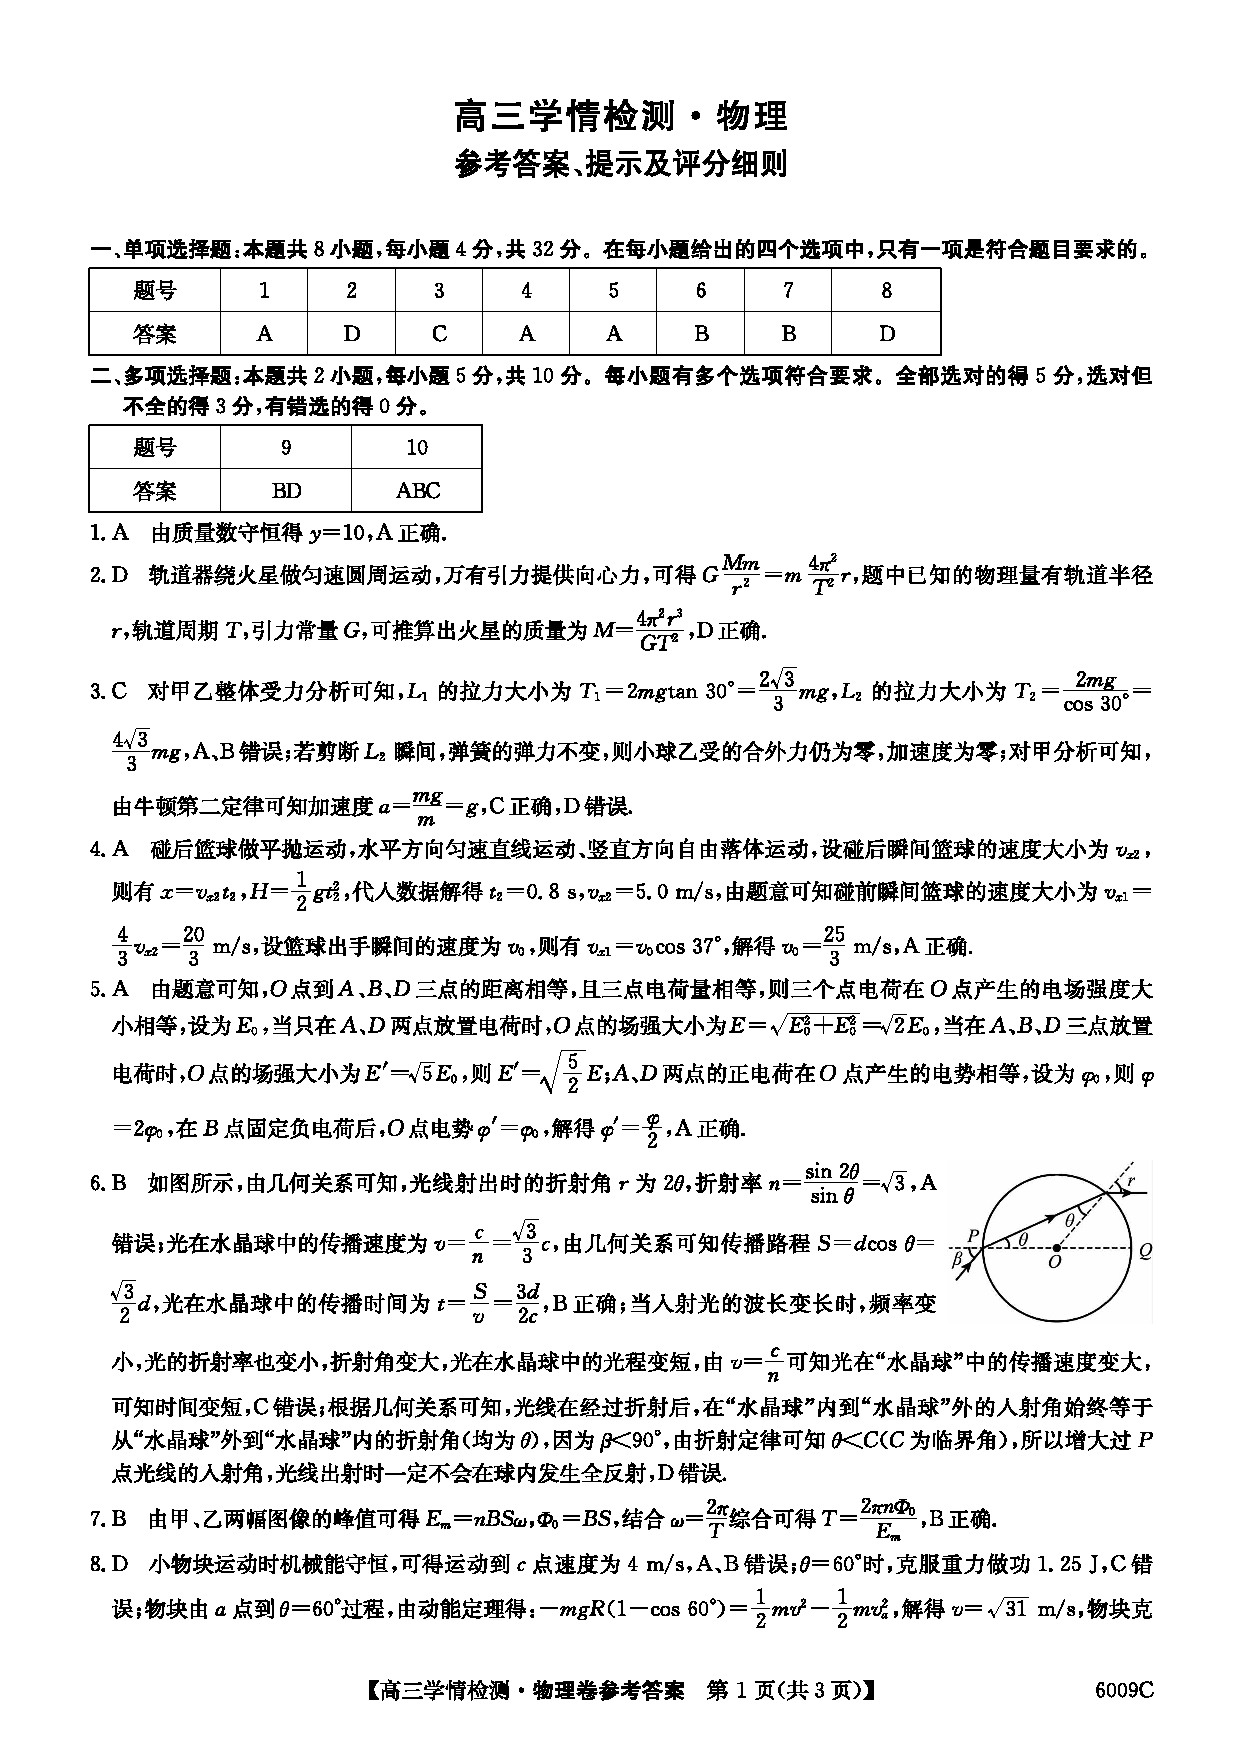 高三学情检测·物理
参考答案、提示及评分细则
一、单项选择题:本题共 8 小题,每小题 4 分,共 32 分。在每小题给出的四个选项中,只有一项是符合题目要求的。
题号 1 2 3 4 5 6 7 8
答案 A D C A A B B D
二、多项选择题:本题共 2 小题,每小题 5 分,共 10 分。每小题有多个选项符合要求。全部选对的得 5 分,选对但
不全的得 3 分,有错选的得 0 分。
题号 9 10
答案 BD ABC
1. A 由质量数守恒得 y=10,A 正确.
2. D 轨道器绕火星做匀速圆周运动,万有引力提供向心力,可得 G\frac{Mm}{r^2}=m\frac{4π^2}{T^2}r,题中已知的物理量有轨道半径
r,轨道周期 T,引力常量 G,可推算出火星的质量为 M=\frac{4π^2r^3}{GT^2},D 正确.
3. C 对甲乙整体受力分析可知,L₁ 的拉力大小为 T₁=2mgtan 30°=\frac{2\sqrt{3}}{3}mg,L₂ 的拉力大小为 T₂=\frac{2mg}{cos 30°}=
\frac{4\sqrt{3}}{3}mg,A、B 错误;若剪断 L₂ 瞬间,弹簧的弹力不变,则小球乙受的合外力仍为零,加速度为零;对甲分析可知,
由牛顿第二定律可知加速度 a=\frac{mg}{m}=g,C 正确,D 错误.
4. A 碰后篮球做平抛运动,水平方向匀速直线运动、竖直方向自由落体运动,设碰后瞬间篮球的速度大小为 v_{x2},
则有 x=v_{x2}t₂,H=\frac{1}{2}gt₂²,代入数据解得 t₂=0.8 s,v_{x2}=5.0 m/s,由题意可知碰前瞬间篮球的速度大小为 v_{x1}=
\frac{4}{3}v_{x2}=\frac{20}{3} m/s,设篮球出手瞬间的速度为 v₀,则有 v_{x1}=v₀cos 37°,解得 v₀=\frac{25}{3} m/s,A 正确.
5. A 由题意可知,O 点到 A、B、D 三点的距离相等,且三点电荷量相等,则三个点电荷在 O 点产生的电场强度大
小相等,设为 E₀,当只在 A、D 两点放置电荷时,O 点的场强大小为 E=\sqrt{E₀²+E₀²}=\sqrt{2}E₀,当在 A、B、D 三点放置
电荷时,O 点的场强大小为 E′=\sqrt{5}E₀,则 E′=\sqrt{\frac{5}{2}}E;A、D 两点的正电荷在 O 点产生的电势相等,设为 φ₀,则 φ
=2φ₀,在 B 点固定负电荷后,O 点电势 φ′=φ₀,解得 φ′=\frac{φ}{2},A 正确.
6. B 如图所示,由几何关系可知,光线射出时的折射角 r 为 2θ,折射率 n=\frac{sin 2θ}{sin θ}=\sqrt{3},A
错误;光在水晶球中的传播速度为 v=\frac{c}{n}=\frac{\sqrt{3}}{3}c,由几何关系可知传播路程 S=dcos θ=
\frac{\sqrt{3}}{2}d,光在水晶球中的传播时间为 t=\frac{S}{v}=\frac{3d}{2c},B 正确;当入射光的波长变长时,频率变
P β θ O θ r Q
小,光的折射率也变小,折射角变大,光在水晶球中的光程变短,由 v=\frac{c}{n}可知光在“水晶球”中的传播速度变大,
可知时间变短,C 错误;根据几何关系可知,光线在经过折射后,在“水晶球”内到“水晶球”外的入射角始终等于
从“水晶球”外到“水晶球”内的折射角(均为 θ),因为 β<90°,由折射定律可知 θ<C(C 为临界角),所以增大过 P
点光线的入射角,光线出射时一定不会在球内发生全反射,D 错误.
7. B 由甲、乙两幅图像的峰值可得 E_m=nBSω,Φ₀=BS,结合 ω=\frac{2π}{T}综合可得 T=\frac{2πnΦ₀}{E_m},B 正确.
8. D 小物块运动时机械能守恒,可得运动到 c 点速度为 4 m/s,A、B 错误;θ=60°时,克服重力做功 1.25 J,C 错
误;物块由 a 点到 θ=60°过程,由动能定理得:-mgR(1-cos 60°)=\frac{1}{2}mv²-\frac{1}{2}mv_a²,解得 v=\sqrt{31} m/s,物块克
【高三学情检测·物理卷参考答案 第 1 页(共 3 页)】 6009C